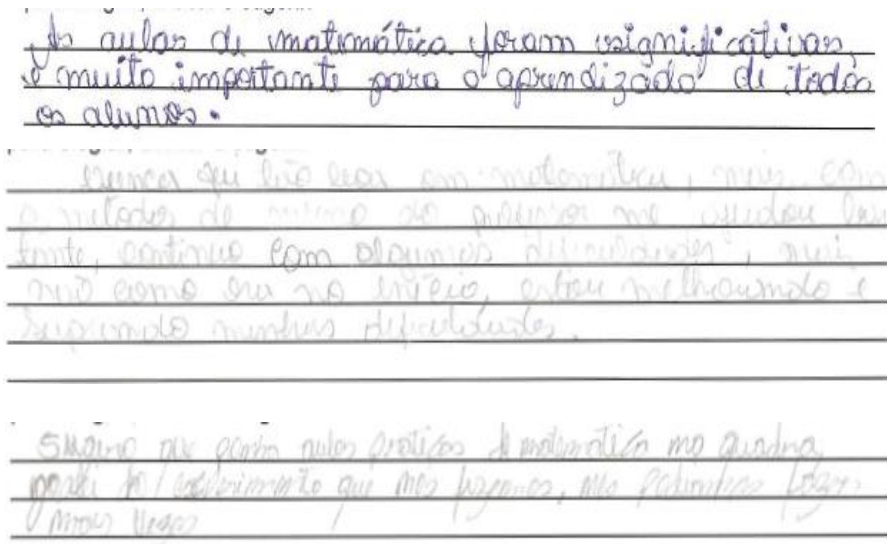 As aulas de matemática foram significativas,
e muito importante para o aprendizado de todos
os alumos.
Nunca qui boa em matemática, mais com
o metodo de ensino do professor me ajudou bas
tante, continuo com algumas dificuldades, mais
não como era no início, estou melhorando e
superando minhas dificuldades.
Sugiro que tenha aulas praticas de matematica na quadra
gostei do experimento que nós fizemos, nós poderíamos fazer
mais vezes